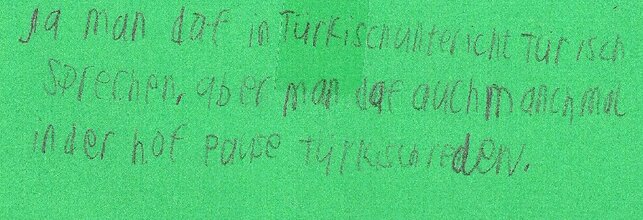 Ja man daf in Türkischunttericht Türisch
sprechen, aber man daf auch manchmal
in der hof pause türkisch reden.